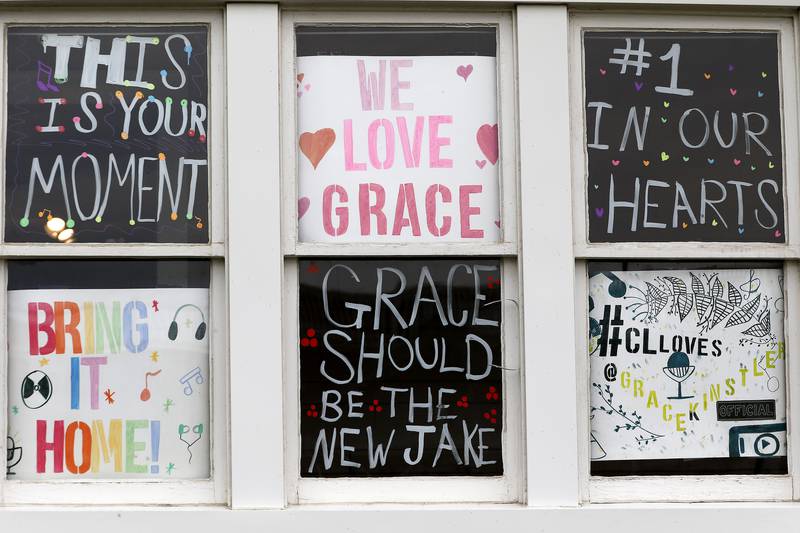 THIS
IS YOUR
MOMENT
WE
LOVE
GRACE
#1
IN OUR
HEARTS
BRING
IT
HOME!
GRACE
SHOULD
BE THE
NEW JAKE
#CLLOVES
@GRACEKINSTLER
OFFICIAL